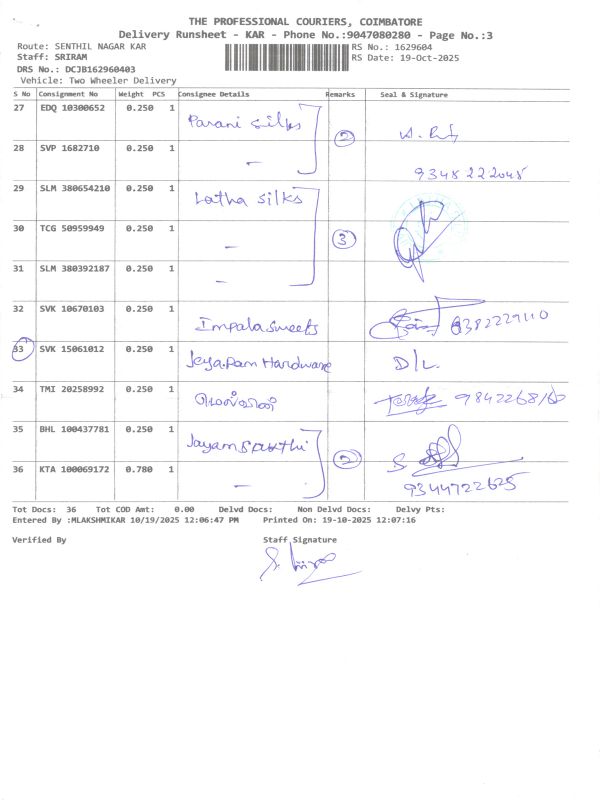 THE PROFESSIONAL COURIERS, COIMBATORE
Delivery Runsheet - KAR - Phone No.:9047080280 - Page No.:3
Route: SENTHIL NAGAR KAR RS No.: 1629604
Staff: SRIRAM RS Date: 19-Oct-2025
DRS No.: DCJB162960403
Vehicle: Two Wheeler Delivery
S No Consignment No Weight PCS Consignee Details Remarks Seal & Signature
27 EDQ 10300652 0.250 1 Parani silks 2
28 SVP 1682710 0.250 1 - 9345222045
29 SLM 380654210 0.250 1 Latha silks
30 TCG 50959949 0.250 1 - 3
31 SLM 380392187 0.250 1 -
32 SVK 10670103 0.250 1 Impala sweets 9382229110
33 SVK 15061012 0.250 1 Jeya Ram Hardware D/L.
34 TMI 20258992 0.250 1
35 BHL 100437781 0.250 1 Jayam Sakthi 2
36 KTA 100069172 0.780 1 - 9344722625
Tot Docs: 36 Tot COD Amt: 0.00 Delvd Docs: Non Delvd Docs: Delvy Pts:
Entered By :MLAKSHMIKAR 10/19/2025 12:06:47 PM Printed On: 19-10-2025 12:07:16
Verified By Staff Signature